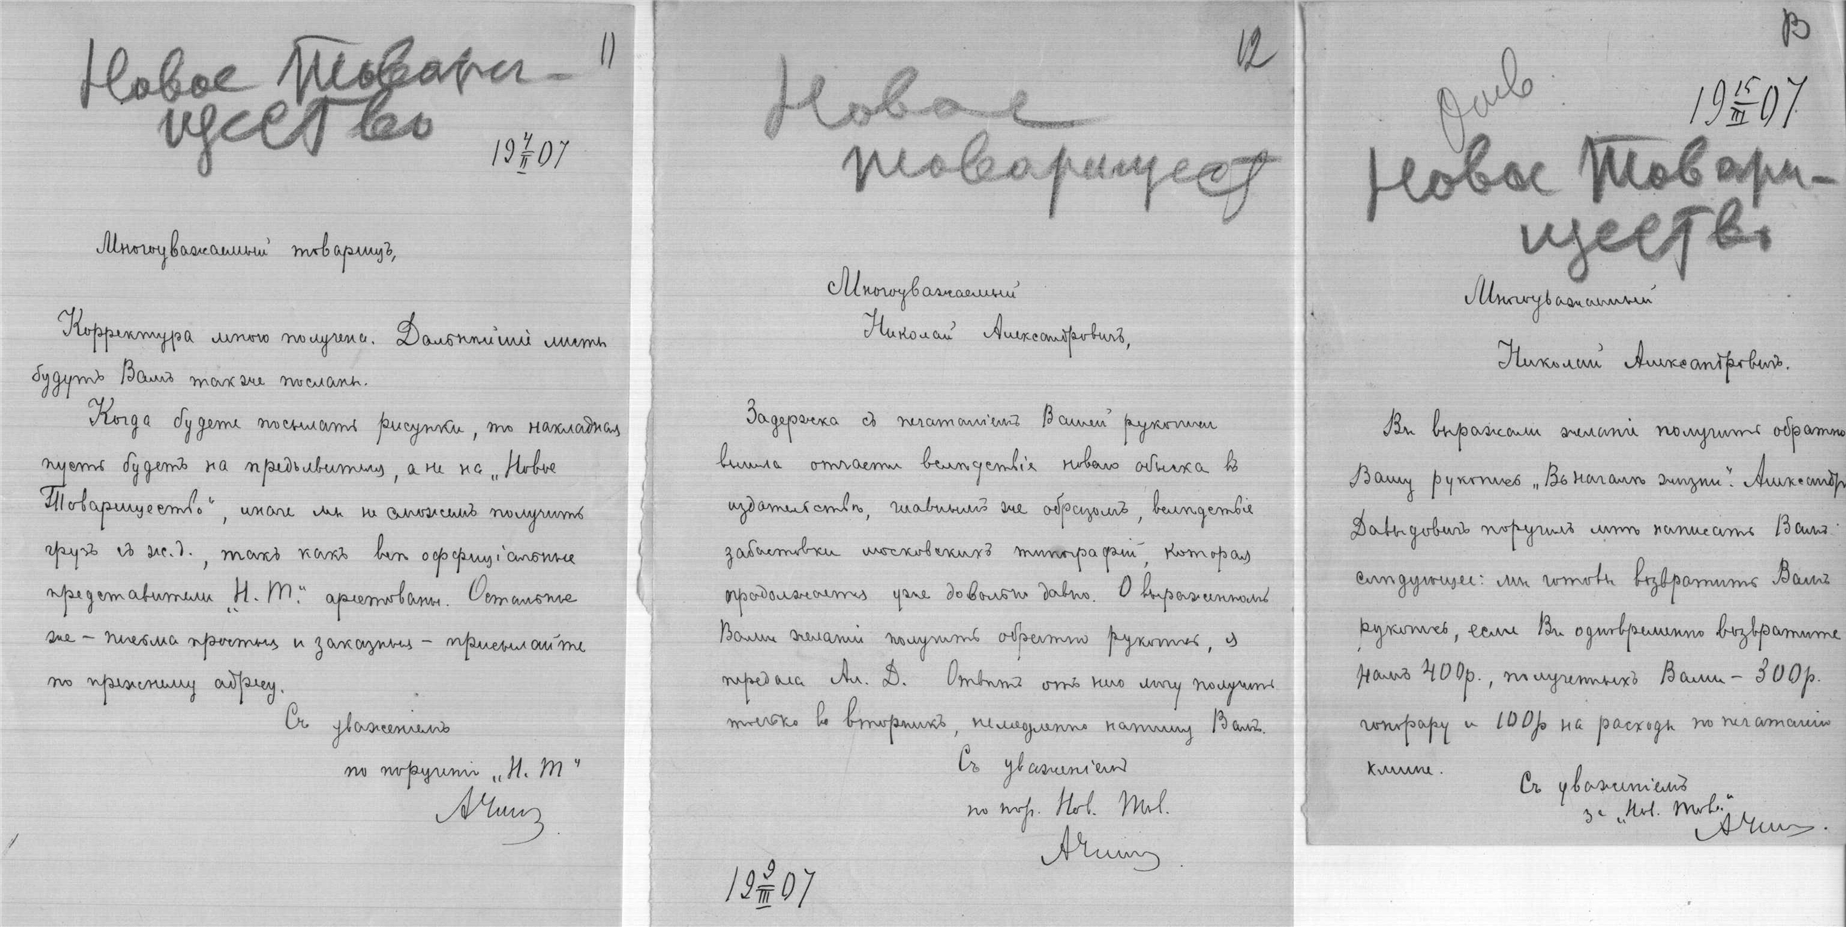 11
Новое Товари-
щество
19 4/II 07
Многоуважаемый товарищъ,
Корректура мною получена. Дальнѣйшіе листы
будутъ Вамъ также посланы.
Когда будете посылать рисунки, то накладная
пусть будетъ на предъявителя, а не на „Новое
Товарищество“, иначе мы не сможемъ получить
грузъ съ ж.д., такъ какъ всѣ оффиціальные
представители „Н. Т.“ арестованы. Остальные
же – письма простыя и заказныя – присылайте
по прежнему адресу.
Съ уваженіемъ
по порученію „Н. Т“
12
Новое
товарищест
Многоуважаемый
Николай Александровичъ,
Задержка съ печатаніемъ Вашей рукописи
вышла отчасти вслѣдствіе новаго обыска въ
издательствѣ, главнымъ же образомъ, вслѣдствіе
забастовки московскихъ типографій, которая
продолжается уже довольно давно. О выраженномъ
Вами желаніи получить обратно рукопись, я
передала Ал. Д. Отвѣтъ отъ него могу получить
только во вторникъ, немедленно напишу Вамъ.
Съ уваженіемъ
по пор. Нов. Тов.
19 9/III 07
В
19 15/III 07
Новое Товари-
щество
Многоуважаемый
Николай Александровичъ.
Вы выражали желаніе получить обратно
Вашу рукопись „Въ началѣ жизни“. Александръ
Давыдовичъ поручилъ мнѣ написать Вамъ
слѣдующее: мы готовы возвратить Вамъ
рукопись, если Вы одновременно возвратите
намъ 400р., полученныхъ Вами – 300р.
гонорару и 100р на расходы по печатанію
клише.
Съ уваженіемъ
за „Нов. Тов.“